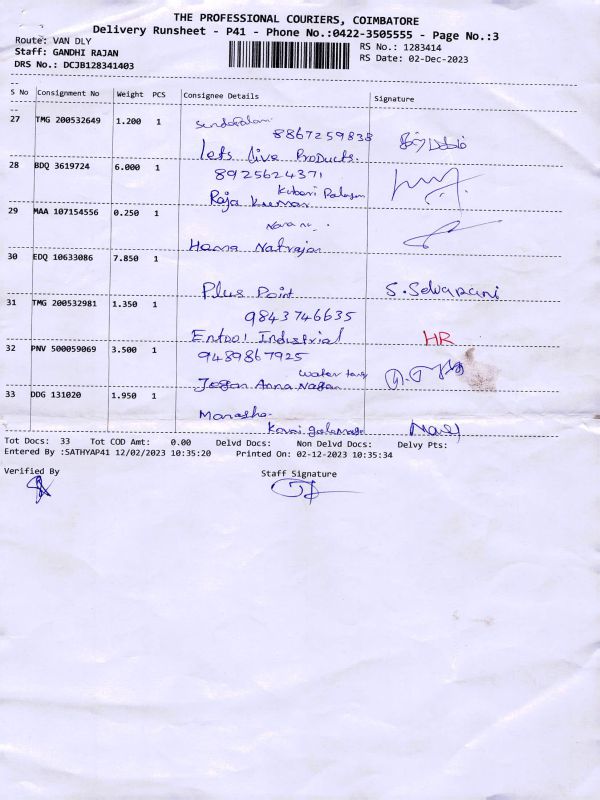 THE PROFESSIONAL COURIERS, COIMBATORE
Delivery Runsheet - P41 - Phone No.:0422-3505555 - Page No.:3
Route: VAN DLY
Staff: GANDHI RAJAN
DRS No.: DCJB128341403
RS No.: 1283414
RS Date: 02-Dec-2023
S No Consignment No Weight PCS Consignee Details Signature
27 TMG 200532649 1.200 1
8867259838
lets live Products.
28 BDQ 3619724 6.000 1 8925624371
Raja Kumar
29 MAA 107154556 0.250 1
Hama Natrajan
30 EDQ 10633086 7.850 1
Plus Point S. Selvarani
31 TMG 200532981 1.350 1 9843746635
Industrial HR
32 PNV 500059069 3.500 1 9489867925
water tang
Anna Nagan
33 DDG 131020 1.950 1
Tot Docs: 33 Tot COD Amt: 0.00 Delvd Docs: Non Delvd Docs: Delvy Pts:
Entered By :SATHYAP41 12/02/2023 10:35:20 Printed On: 02-12-2023 10:35:34
Verified By Staff Signature